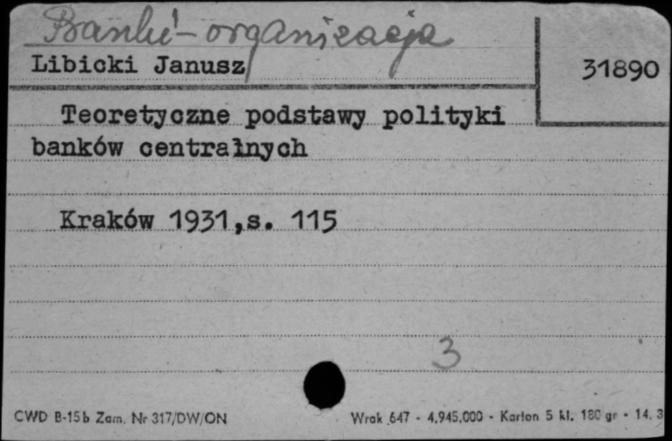 Banki - organizacja
Libicki Janusz
31890
Teoretyczne podstawy polityki
banków centralnych
Kraków 1931,s. 115
3
CWD B-15b Zam. Nr 317/DW/ON
Wrak 647 - 4.945.000 - Karton 5 kl. 180 gr - 14. 3